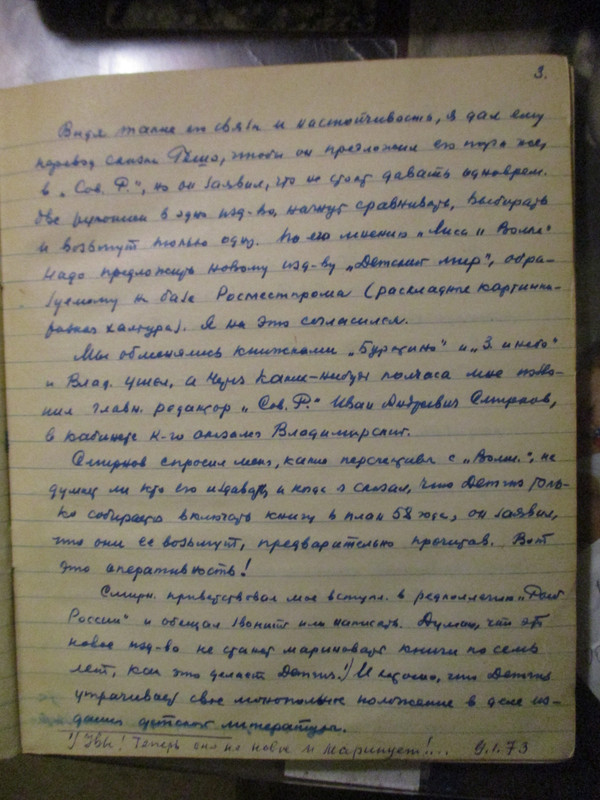 3.
Видя такие его связи и настойчивость, я дал ему
перевод сказки Гёшо, чтобы он предложил его туда же,
в „Сов. Р.“, но он заявил, что не стоит давать одноврем.
две рукописи в одно изд-во, начнут сравнивать, выбирать
и возьмут только одну. По его мнению „Лиса и Волк“
надо предложить новому изд-ву „Детский мир“, обра-
зуемому на базе Росместпрома (раскладные картинки-
разная халтура). Я на это согласился.
Мы обменялись книжками „Буратино“ и „З. и небо“
и Влад. ушел, а через какие-нибудь полчаса мне позво-
нил главн. редактор „Сов. Р.“ Иван Андреевич Смирнов,
в кабинете к-го оказался Владимирский.
Смирнов спросил меня, какие перспективы с „Волш.“, не
думает ли кто его издавать, и когда я сказал, что Детгиз толь-
ко собирается включать книгу в план 58 года, он заявил,
что они ее возьмут, предварительно прочитав. Вот
это оперативность!
Смирн. приветствовал мое вступл. в редколлегию
России“ и обещал звонить или написать. Думаю, что это
новое изд-во не станет мариновать книги по семь
лет, как это делает Детгиз.¹) И хорошо, что Детгиз
утрачивает свое монопольное положение в деле из-
дания детской литературы.
¹) Увы! Теперь оно не новое и маринует!... 9.1.73